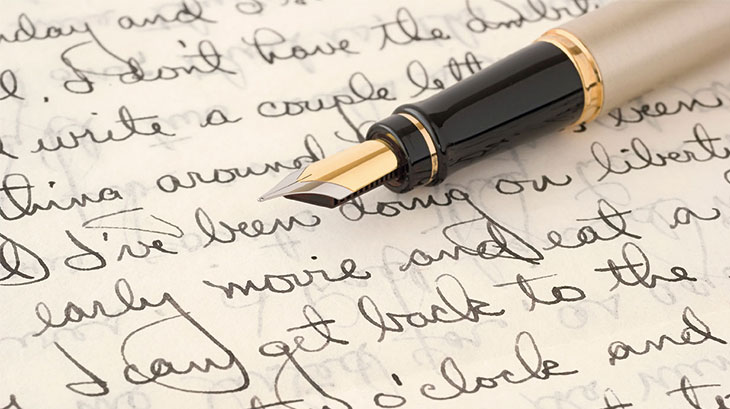 day and
I don't have the
write a couple
thing around been
I've been doing on
early movie and eat a
I can get back to the
o'clock and